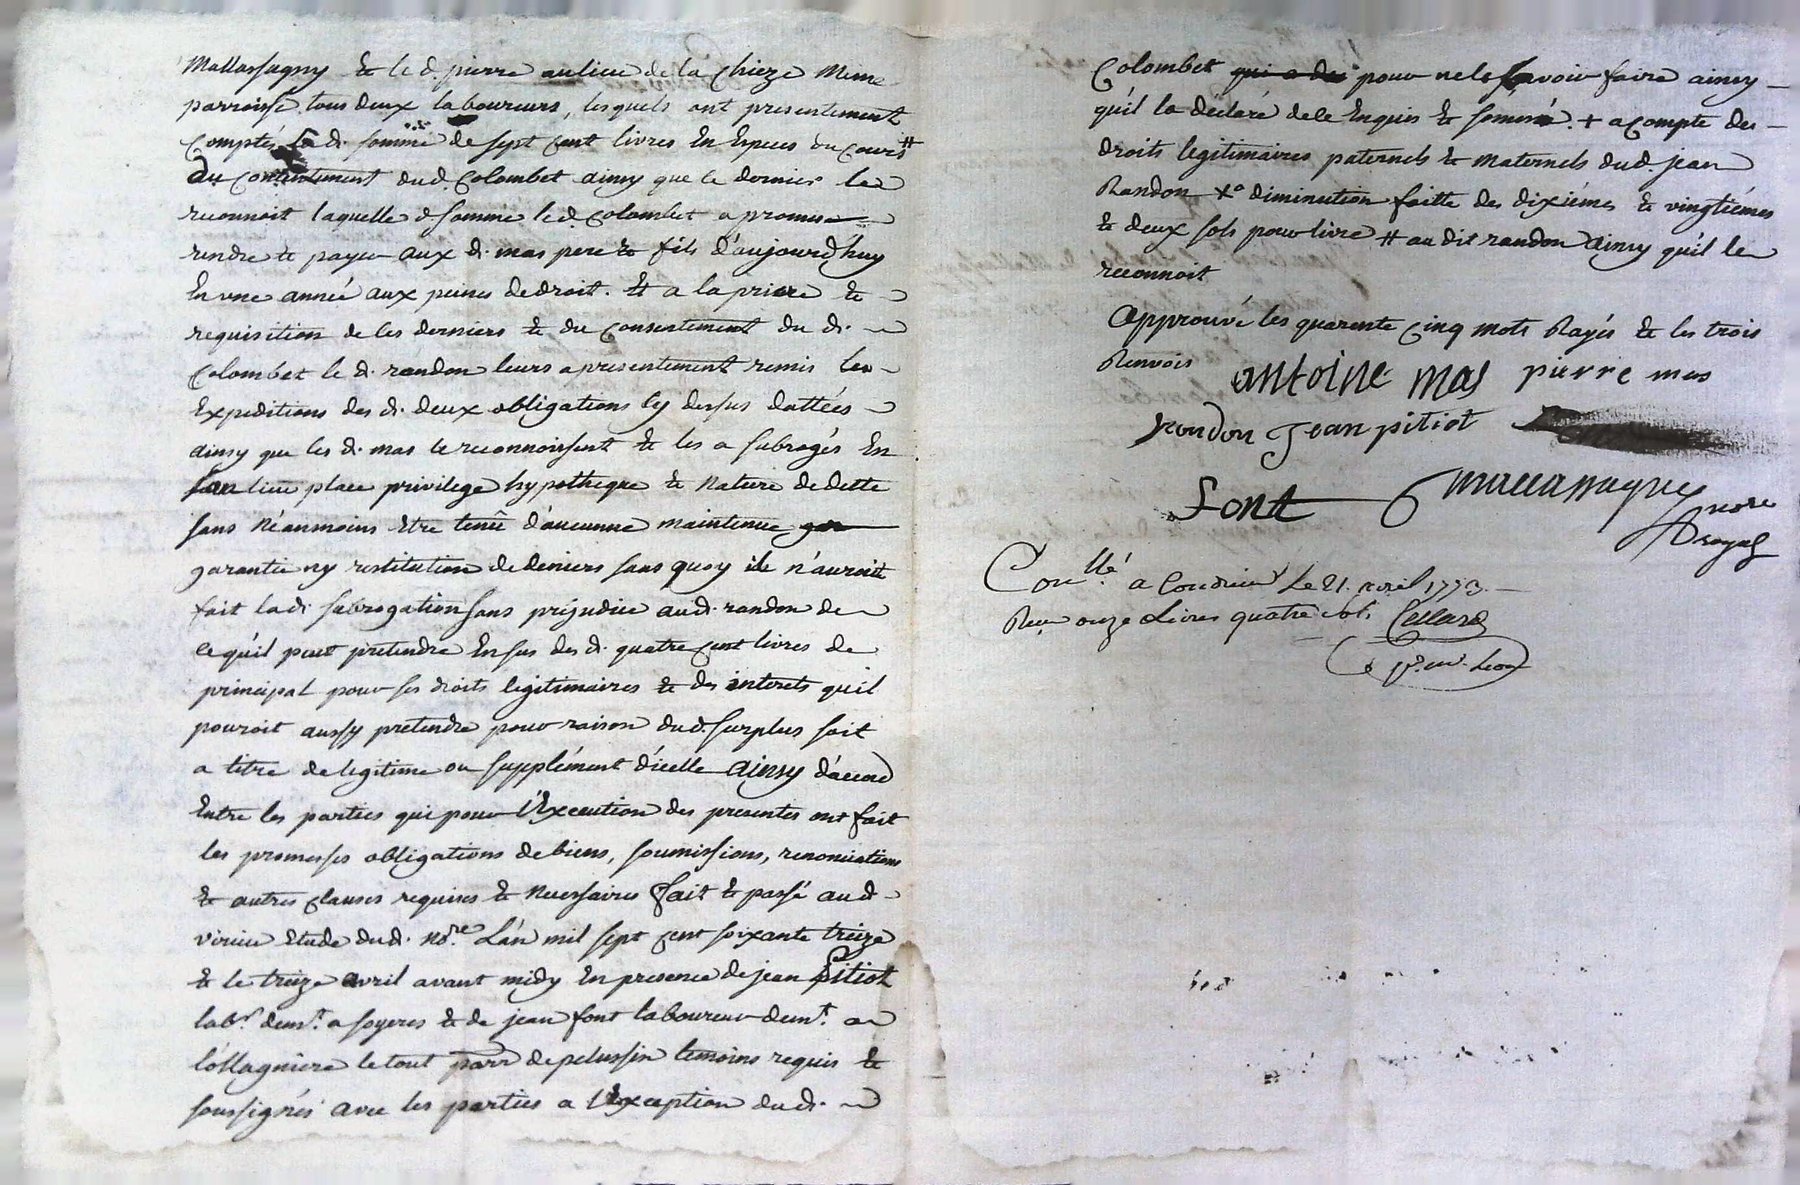 Mallassagny & le d. pierre au lieu de la Chieze Meme
parroisse tous deux laboureurs, lesquels ont presentement
Comptés la d. somme de sept cent livres En Especes du cours #
du Consentement dud. Colombet ainsy que le dernier le
reconnoit laquelle d. somme le d. Colombet a promis
rendre & payer aux d. mas pere & fils d'aujourd'huy
En une année aux peines de droit. Et a la priere &
requisition de les derniers & du Consentement du d.
Colombet le d. randon leurs a presentement remis les
Expeditions des d. deux obligations cy dessus dattées
ainsy que les d. mas le reconnoissent & les a subrogés En
son lieu place privilege hypotheque & Nature de dette
sans Néanmoins Etre tenû d'aucunne maintenue
garantie ny restitution de deniers sans quoy il n'auroit
fait la d. subrogation sans prejudice au d. randon de
ce qu'il peut pretendre En sus des d. quatre cent livres de
principal pour ses droits legitimaires & des interets qu'il
pouroit aussy pretendre pour raison dud. surplus soit
a titre de legitime ou supplément d'icelle ainsy d'accord
Entre les parties qui pour l'Execution des presentes ont fait
les promesses obligations de biens, soumissions, renonciations
& autres clauses requises & Necessaires fait & passé au d.
virieu Etude dud. No.re L'an mil sept cent soixante treize
& le treize avril avant midy En presence de jean Pitiot
lab.r dem.t a soyeres & de jean font laboureur dem.t a
lollagniere le tout parr de pelussin temoins requis &
soussignés avec les parties a l'Exception du d.
Colombet qui a dit pour ne le sçavoir faire ainsy
qu'il la déclaré de ce Enquis & sommé. + a compte des
droits legitimaires paternels & maternels dud. jean
Randon Xo diminution faitte des dixiémes & vingtiémes
& deux sols pour livre # au dit randon ainsy qu'il le
reconnoit
Approuvé les quarente Cinq mots Rayés & les trois
Renvois
antoine mas pierre mas
randon Jean pitiot
Font Mallassagny
nore
royal
Con.llé a Condrieu Le 21. avril 1773.
Reçu onze Livres quatre sols Cellard